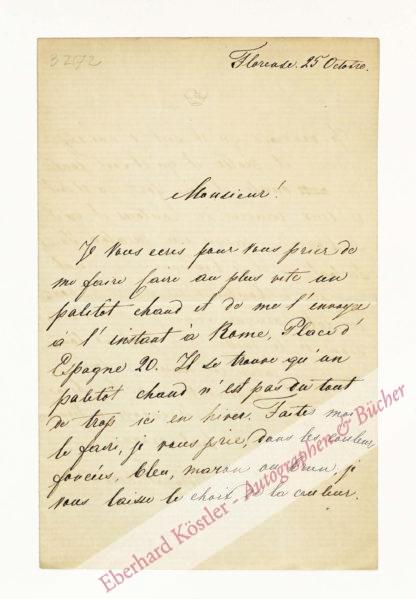 3272
Florense. 25 Octobre.
Monsieur!
Je vous ecris pour vous prier de
me faire faire au plus vite un
paletot chaud et de me l'envoyer
a l'instant à Rome, Place d'
Espagne 20. Il se trouve qu'un
paletot chaud n'est pas du tout
de trop ici en hiver. Faites moi
le faire, je vous prie, dans les couleurs
foncées, bleu, maron ou brun, je
vous laisse le choix de la couleur.
Eberhard Köstler - Autographen & Bücher